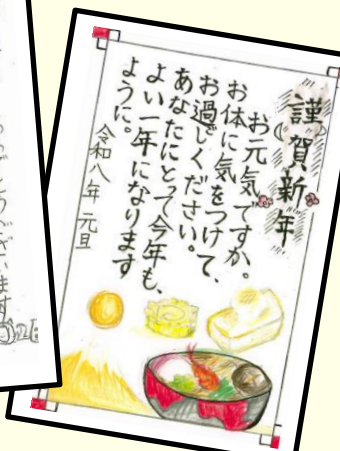 謹賀新年
お元気ですか。
お体に気をつけて、
お過しください。
あなたにとって今年も、
よい一年になります
ように。
令和八年 元旦
うございます